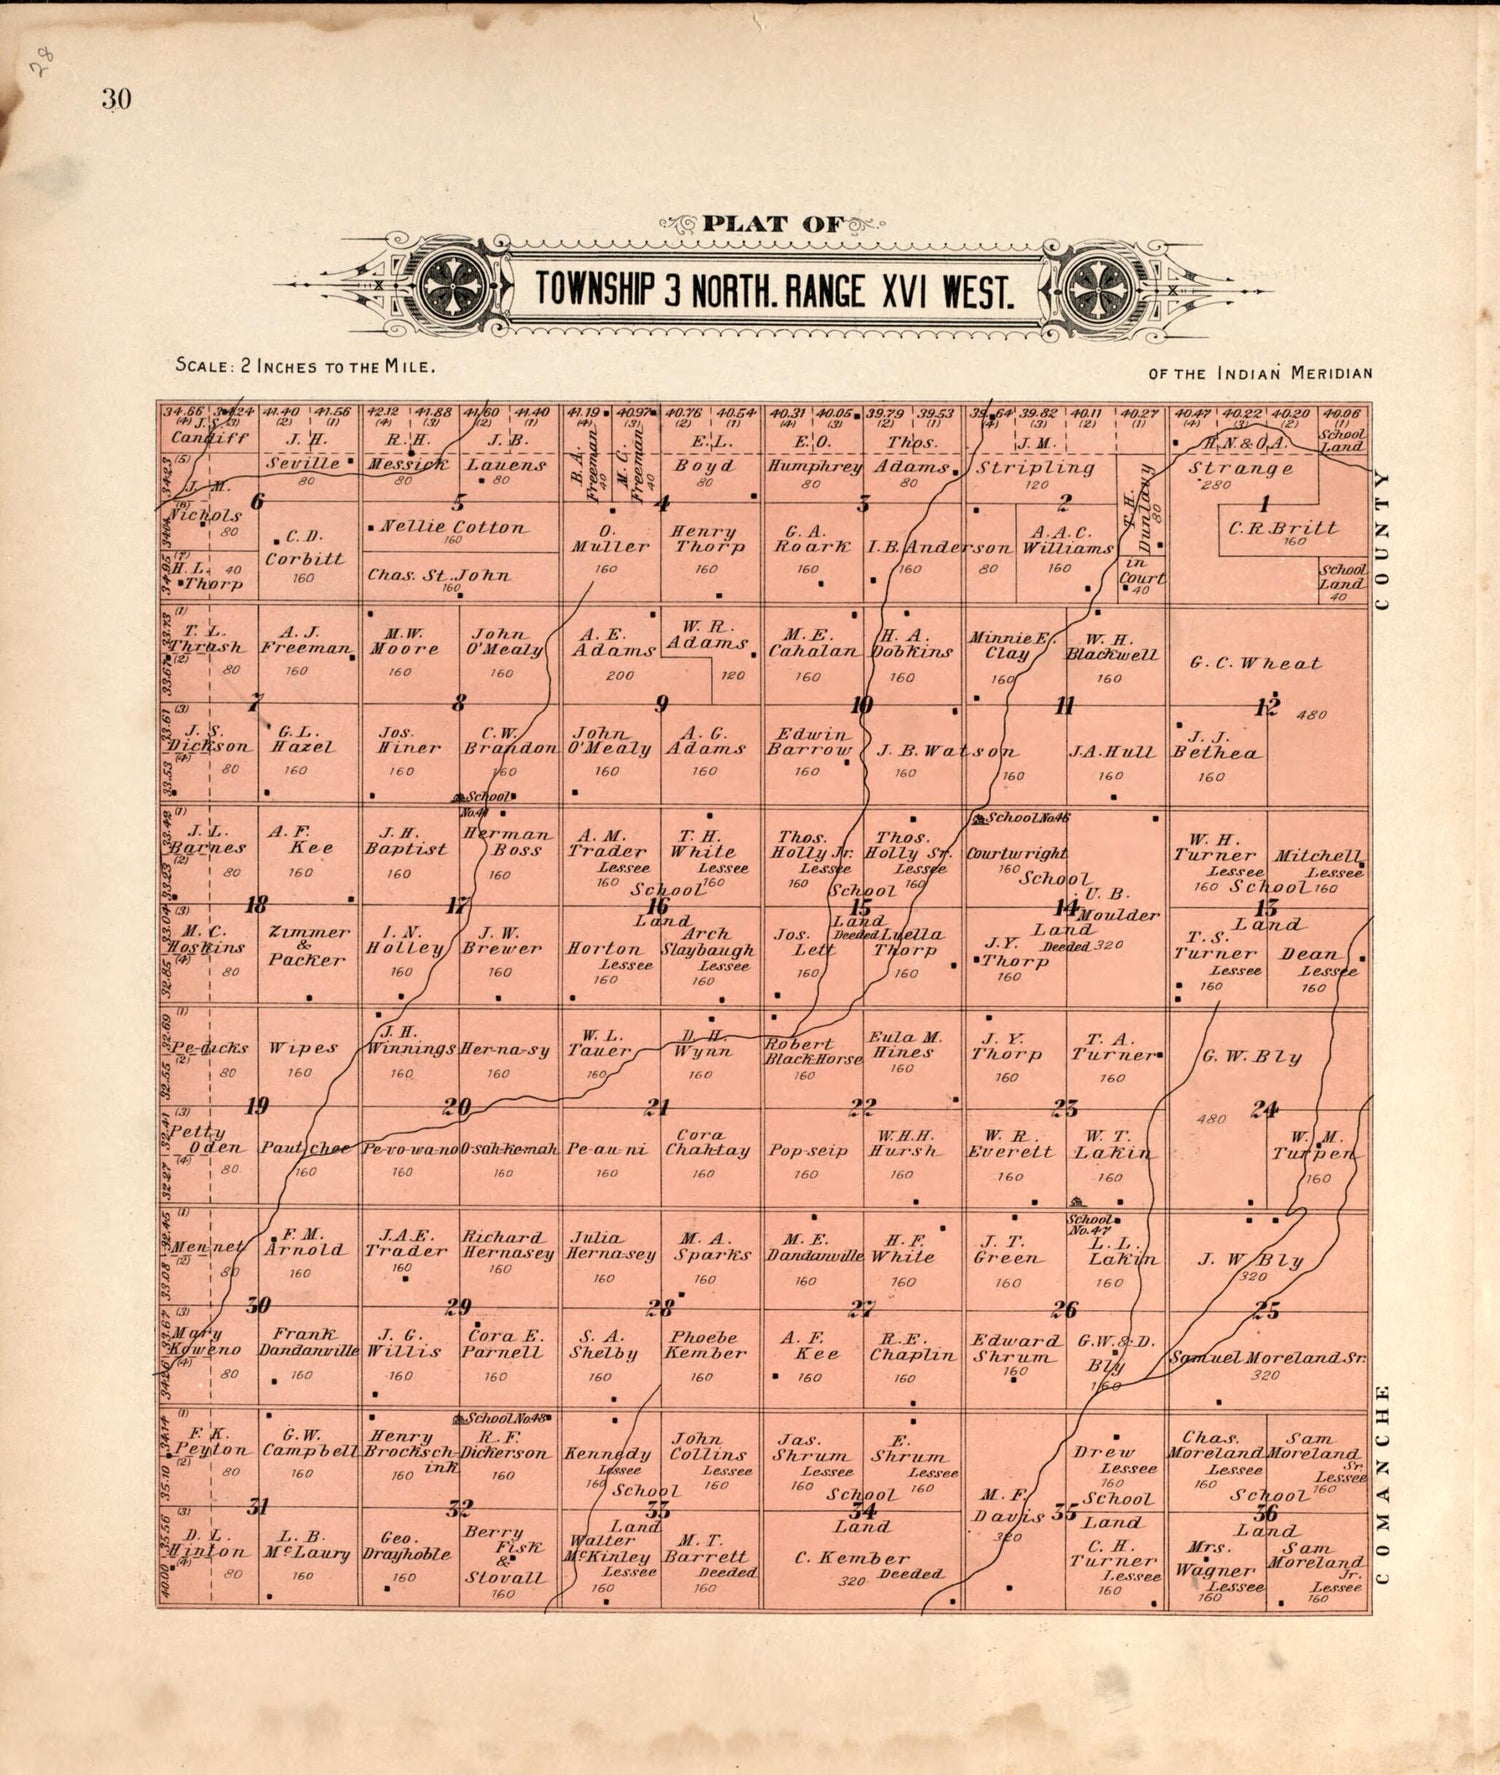 28
30
PLAT OF
TOWNSHIP 3 NORTH. RANGE XVI WEST.
SCALE: 2 INCHES TO THE MILE.
OF THE INDIAN MERIDIAN
34.66 34.24 41.40 41.56 42.12 41.88 41.60 41.40 41.19 40.97 40.76 40.54 40.31 40.05 39.79 39.53 39.64 39.82 40.11 40.27 40.47 40.22 40.20 40.06
(4) (3) (2) (1) (4) (3) (2) (1) (4) (3) (2) (1) (4) (3) (2) (1) (4) (3) (2) (1) (4) (3) (2) (1)
J. S.
Candiff
J. H.
Seville
80
R. H.
Messick
80
J. B.
Lavens
80
B. A.
Freeman
40
M. C.
Freeman
40
E. L.
Boyd
80
E. O.
Humphrey
80
Thos.
Adams
80
J. M.
Stripling
120
T. H.
Dunlavy
80
H. N. & O. A.
Strange
280
School
Land
(5)
J. M.
Nichols
80
(6)
(7)
H. L. 40
Thorp
6
C. D.
Corbitt
160
5
Nellie Cotton
160
Chas. St. John
160
4
O.
Muller
160
Henry
Thorp
160
3
G. A.
Roark
160
I. B. Anderson
160
80
2
A. A. C.
Williams
160
in
Court
40
1
C. R. Britt
160
School
Land
40
COUNTY
(1)
T. L.
Thrash
(2)
80
A. J.
Freeman
160
M. W.
Moore
160
John
O'Mealy
160
A. E.
Adams
200
W. R.
Adams
120
M. E.
Cahalan
160
H. A.
Dobkins
160
Minnie E.
Clay
160
W. H.
Blackwell
160
G. C. Wheat
480
7
8
9
10
11
12
(3)
J. S.
Dickson
(4)
80
G. L.
Hazel
160
Jos.
Hiner
160
C. W.
Brandon
160
John
O'Mealy
160
A. G.
Adams
160
Edwin
Barrow
160
J. B. Watson
160
160
J. A. Hull
160
J. J.
Bethea
160
School
No. 41
School No 46
(1)
J. L.
Barnes
(2)
80
A. F.
Kee
160
J. H.
Baptist
160
Herman
Boss
160
A. M.
Trader
Lessee
160
T. H.
White
Lessee
160
School
Thos.
Holly Jr.
Lessee
160
Thos.
Holly Sr.
Lessee
160
School
Courtwright
160
School
W. H.
Turner
Lessee
160
Mitchell
Lessee
160
School
18
17
16
15
14
13
(3)
M. C.
Hoskins
(4)
80
Zimmer
&
Packer
I. N.
Holley
160
J. W.
Brewer
160
Land
Horton
Lessee
160
Arch
Slaybaugh
Lessee
160
Land
Deeded
Jos.
Lett
160
Luella
Thorp
160
Land
J. Y.
Thorp
160
U. B.
Moulder
Deeded 320
Land
T. S.
Turner
Lessee
160
Dean
Lessee
160
(1)
Pe-dicks
(2)
80
Wipes
160
J. H.
Winnings
160
Her-na-sy
160
W. L.
Tauer
160
D. H.
Wynn
160
Robert
Black Horse
160
Eula M.
Hines
160
J. Y.
Thorp
160
T. A.
Turner
160
G. W. Bly
480
19
20
21
22
23
24
(3)
Petty
Oden
(4)
80
Paut choe
160
Pe-vo-wa-no
160
O-sah-ke-mah
160
Pe-au-ni
160
Cora
Chahtay
160
Pop-seip
160
W. H. H.
Hursh
160
W. R.
Everett
160
W. T.
Lakin
160
W. M.
Turpen
160
School
No. 47
(1)
Mennet
(2)
80
F. M.
Arnold
160
J. A. E.
Trader
160
Richard
Hernasey
160
Julia
Herna-sey
160
M. A.
Sparks
160
M. E.
Dandanville
160
H. F.
White
160
J. T.
Green
160
L. L.
Lakin
160
J. W. Bly
320
30
29
28
27
26
25
(3)
Mary
Koweno
(4)
80
Frank
Dandanville
160
J. G.
Willis
160
Cora E.
Parnell
160
S. A.
Shelby
160
Phoebe
Kember
160
A. F.
Kee
160
R. E.
Chaplin
160
Edward
Shrum
160
G. W. & D.
Bly
160
Samuel Moreland Sr.
320
COMANCHE
(1)
F. K.
Peyton
(2)
80
G. W.
Campbell
160
Henry
Brocksch-
ink
160
School No 48
R. F.
Dickerson
160
Kennedy
Lessee
160
School
John
Collins
Lessee
160
Jas.
Shrum
Lessee
160
School
E.
Shrum
Lessee
160
M. F.
Davis
320
Drew
Lessee
160
School
Chas.
Moreland
Lessee
160
School
Sam
Moreland
Sr.
Lessee
160
31
32
33
34
35
36
(3)
D. L.
Hinton
(4)
80
L. B.
McLaury
160
Geo.
Drayhoble
160
Berry
Fisk
&
Stovall
160
Land
Walter
McKinley
Lessee
160
M. T.
Barrett
Deeded
160
Land
C. Kember
320 Deeded
Land
C. H.
Turner
Lessee
160
Land
Mrs.
Wagner
Lessee
160
Sam
Moreland
Jr.
Lessee
160